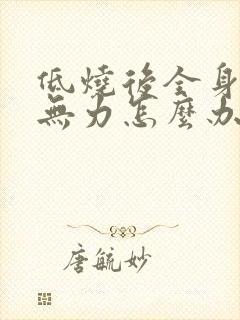 低燒後全身
無力怎麼办
唐毓妙